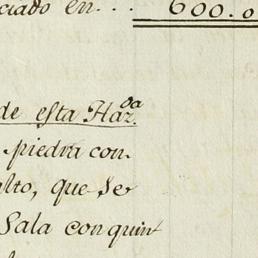 ciado en... 600.0
de esta Haz.da
piedra con-
alto, que se
Sala con quint